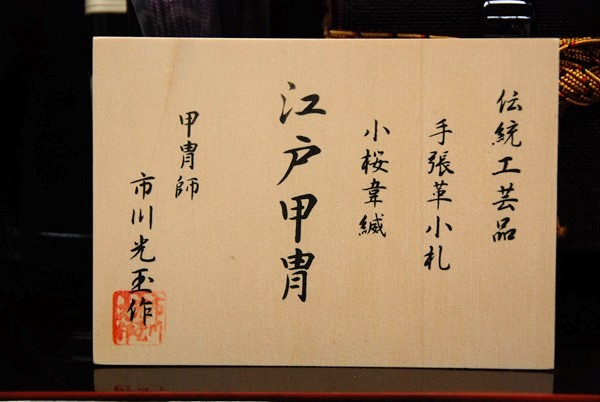 伝統工芸品
手張革小札
小桜韋縅
江戸甲冑
甲冑師
市川光玉作